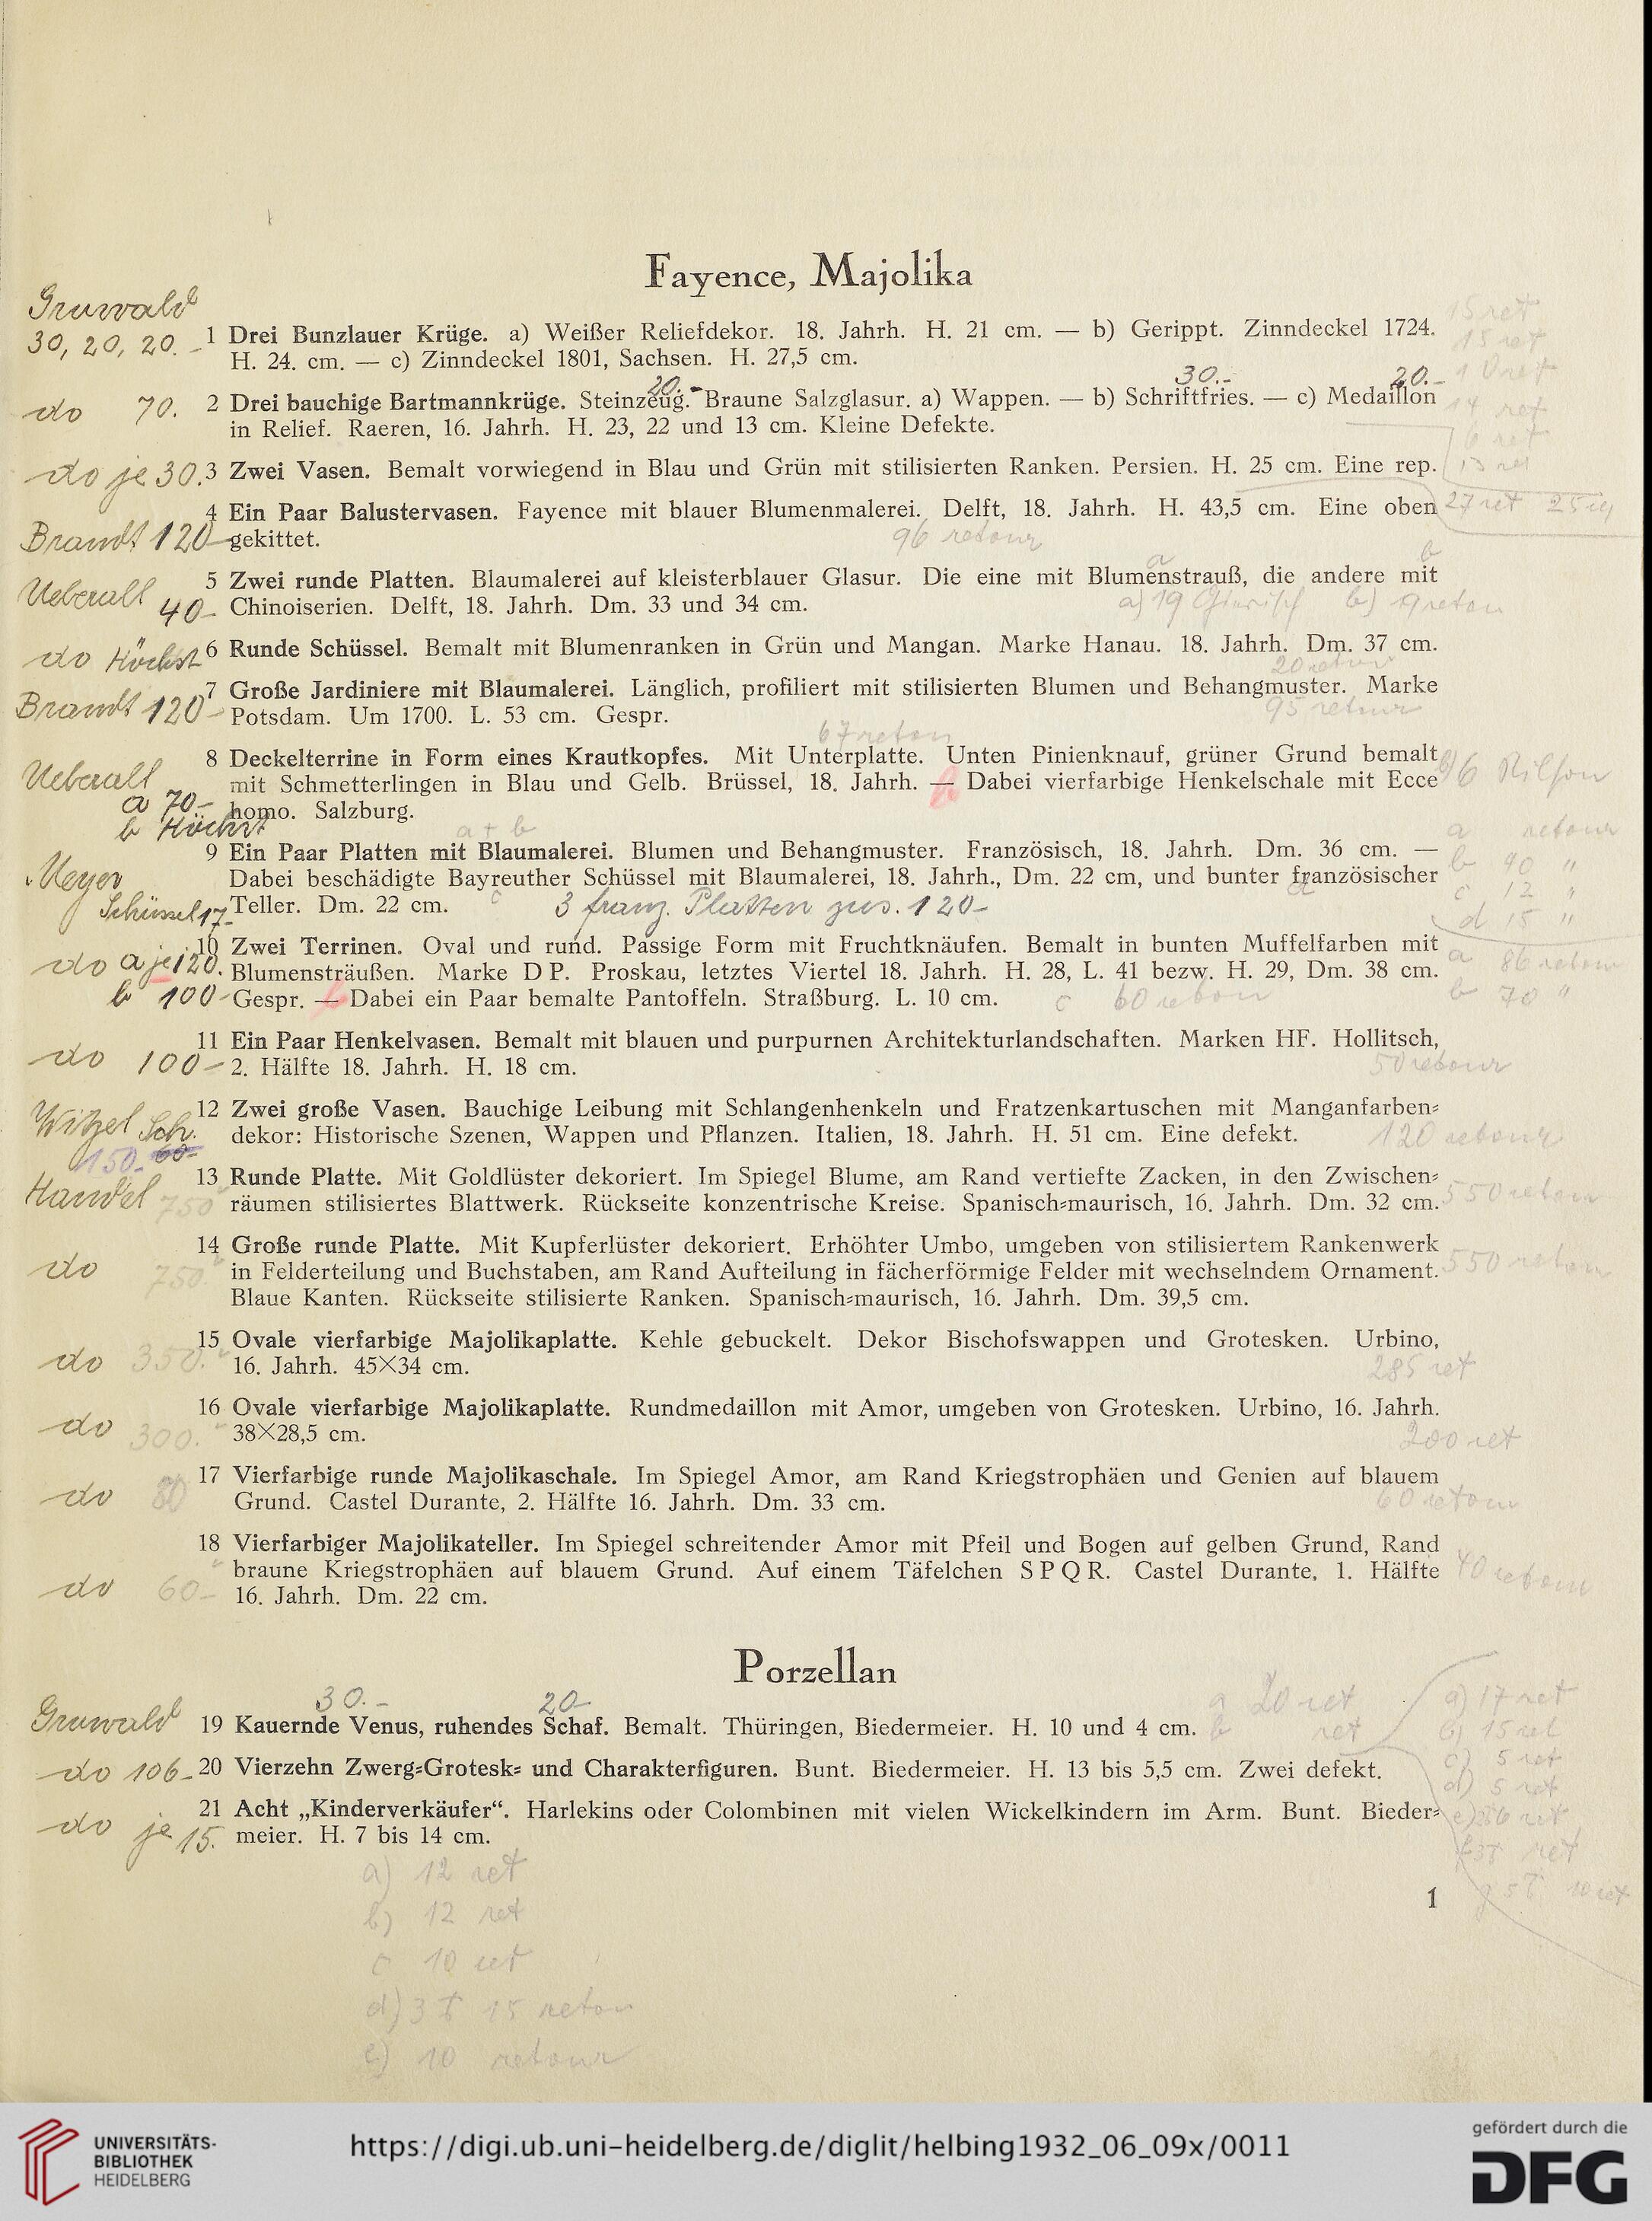 Fayence, Majolika
Gruwald
30, 20, 20.
1 Drei Bunzlauer Krüge. a) Weißer Reliefdekor. 18. Jahrh. H. 21 cm. — b) Gerippt. Zinndeckel 1724.
H. 24. cm. — c) Zinndeckel 1801, Sachsen. H. 27,5 cm.
15 ret
15 ret
10 ret
20.- 30.- 20.-
do 70.
2 Drei bauchige Bartmannkrüge. Steinzeug. Braune Salzglasur. a) Wappen. — b) Schriftfries. — c) Medaillon
in Relief. Raeren, 16. Jahrh. H. 23, 22 und 13 cm. Kleine Defekte.
14 ret
6 ret
13 ret
do je 30.
3 Zwei Vasen. Bemalt vorwiegend in Blau und Grün mit stilisierten Ranken. Persien. H. 25 cm. Eine rep.
27 ret
Brandt 120-
4 Ein Paar Balustervasen. Fayence mit blauer Blumenmalerei. Delft, 18. Jahrh. H. 43,5 cm. Eine oben
gekittet.
96 retour
a b
Ueberall 40-
5 Zwei runde Platten. Blaumalerei auf kleisterblauer Glasur. Die eine mit Blumenstrauß, die andere mit
Chinoiserien. Delft, 18. Jahrh. Dm. 33 und 34 cm.
a) 19 b)
do Höchst
6 Runde Schüssel. Bemalt mit Blumenranken in Grün und Mangan. Marke Hanau. 18. Jahrh. Dm. 37 cm.
20 retour
Brandt 120-
7 Große Jardiniere mit Blaumalerei. Länglich, profiliert mit stilisierten Blumen und Behangmuster. Marke
Potsdam. Um 1700. L. 53 cm. Gespr.
95 retour
67 retour
Ueberall
a 70-
b Höchst
8 Deckelterrine in Form eines Krautkopfes. Mit Unterplatte. Unten Pinienknauf, grüner Grund bemalt
mit Schmetterlingen in Blau und Gelb. Brüssel, 18. Jahrh. — b Dabei vierfarbige Henkelschale mit Ecce
homo. Salzburg.
a + b
Meyer
Schüssel 17-
9 Ein Paar Platten mit Blaumalerei. Blumen und Behangmuster. Französisch, 18. Jahrh. Dm. 36 cm. —
Dabei beschädigte Bayreuther Schüssel mit Blaumalerei, 18. Jahrh., Dm. 22 cm, und bunter französischer
Teller. Dm. 22 cm. c 3 franz. Platten zus. 120- d
a retour
b 90 "
c 12 "
d 15 "
do a je 120.
b 100-
10 Zwei Terrinen. Oval und rund. Passige Form mit Fruchtknäufen. Bemalt in bunten Muffelfarben mit
Blumensträußen. Marke D P. Proskau, letztes Viertel 18. Jahrh. H. 28, L. 41 bezw. H. 29, Dm. 38 cm.
Gespr. — b Dabei ein Paar bemalte Pantoffeln. Straßburg. L. 10 cm. c 60 retour
a 86 retour
b 70 "
do 100-
11 Ein Paar Henkelvasen. Bemalt mit blauen und purpurnen Architekturlandschaften. Marken HF. Hollitsch,
2. Hälfte 18. Jahrh. H. 18 cm.
50 retour
Witzel Sch.
150.- 60-
12 Zwei große Vasen. Bauchige Leibung mit Schlangenhenkeln und Fratzenkartuschen mit Manganfarben-
dekor: Historische Szenen, Wappen und Pflanzen. Italien, 18. Jahrh. H. 51 cm. Eine defekt.
120 retour
Handel 750
13 Runde Platte. Mit Goldlüster dekoriert. Im Spiegel Blume, am Rand vertiefte Zacken, in den Zwischen-
räumen stilisiertes Blattwerk. Rückseite konzentrische Kreise. Spanisch-maurisch, 16. Jahrh. Dm. 32 cm.
550 retour
do 750.
14 Große runde Platte. Mit Kupferlüster dekoriert. Erhöhter Umbo, umgeben von stilisiertem Rankenwerk
in Felderteilung und Buchstaben, am Rand Aufteilung in fächerförmige Felder mit wechselndem Ornament.
Blaue Kanten. Rückseite stilisierte Ranken. Spanisch-maurisch, 16. Jahrh. Dm. 39,5 cm.
550 retour
do 350.
15 Ovale vierfarbige Majolikaplatte. Kehle gebuckelt. Dekor Bischofswappen und Grotesken. Urbino,
16. Jahrh. 45×34 cm.
285 ret
do 300.
16 Ovale vierfarbige Majolikaplatte. Rundmedaillon mit Amor, umgeben von Grotesken. Urbino, 16. Jahrh.
38×28,5 cm.
200 ret
do 80
17 Vierfarbige runde Majolikaschale. Im Spiegel Amor, am Rand Kriegstrophäen und Genien auf blauem
Grund. Castel Durante, 2. Hälfte 16. Jahrh. Dm. 33 cm.
60 retour
do 60-
18 Vierfarbiger Majolikateller. Im Spiegel schreitender Amor mit Pfeil und Bogen auf gelben Grund, Rand
braune Kriegstrophäen auf blauem Grund. Auf einem Täfelchen S P Q R. Castel Durante, 1. Hälfte
16. Jahrh. Dm. 22 cm.
40 retour
Porzellan
30.- 20-
Gruwald
19 Kauernde Venus, ruhendes Schaf. Bemalt. Thüringen, Biedermeier. H. 10 und 4 cm.
a 20 ret
b ret
do 106-
20 Vierzehn Zwerg-Grotesk- und Charakterfiguren. Bunt. Biedermeier. H. 13 bis 5,5 cm. Zwei defekt.
a) 17 ret
b) 15 ret
c) 5 ret
d) 5 ret
do je 15.
21 Acht „Kinderverkäufer“. Harlekins oder Colombinen mit vielen Wickelkindern im Arm. Bunt. Bieder-
meier. H. 7 bis 14 cm.
a) 12 ret
b) 12 ret
c 10 ret
d) 3 T 15 retour
e) 10 retour
1
UNIVERSITÄTS-
BIBLIOTHEK
HEIDELBERG
https://digi.ub.uni-heidelberg.de/diglit/helbing1932_06_09x/0011
gefördert durch die
DFG